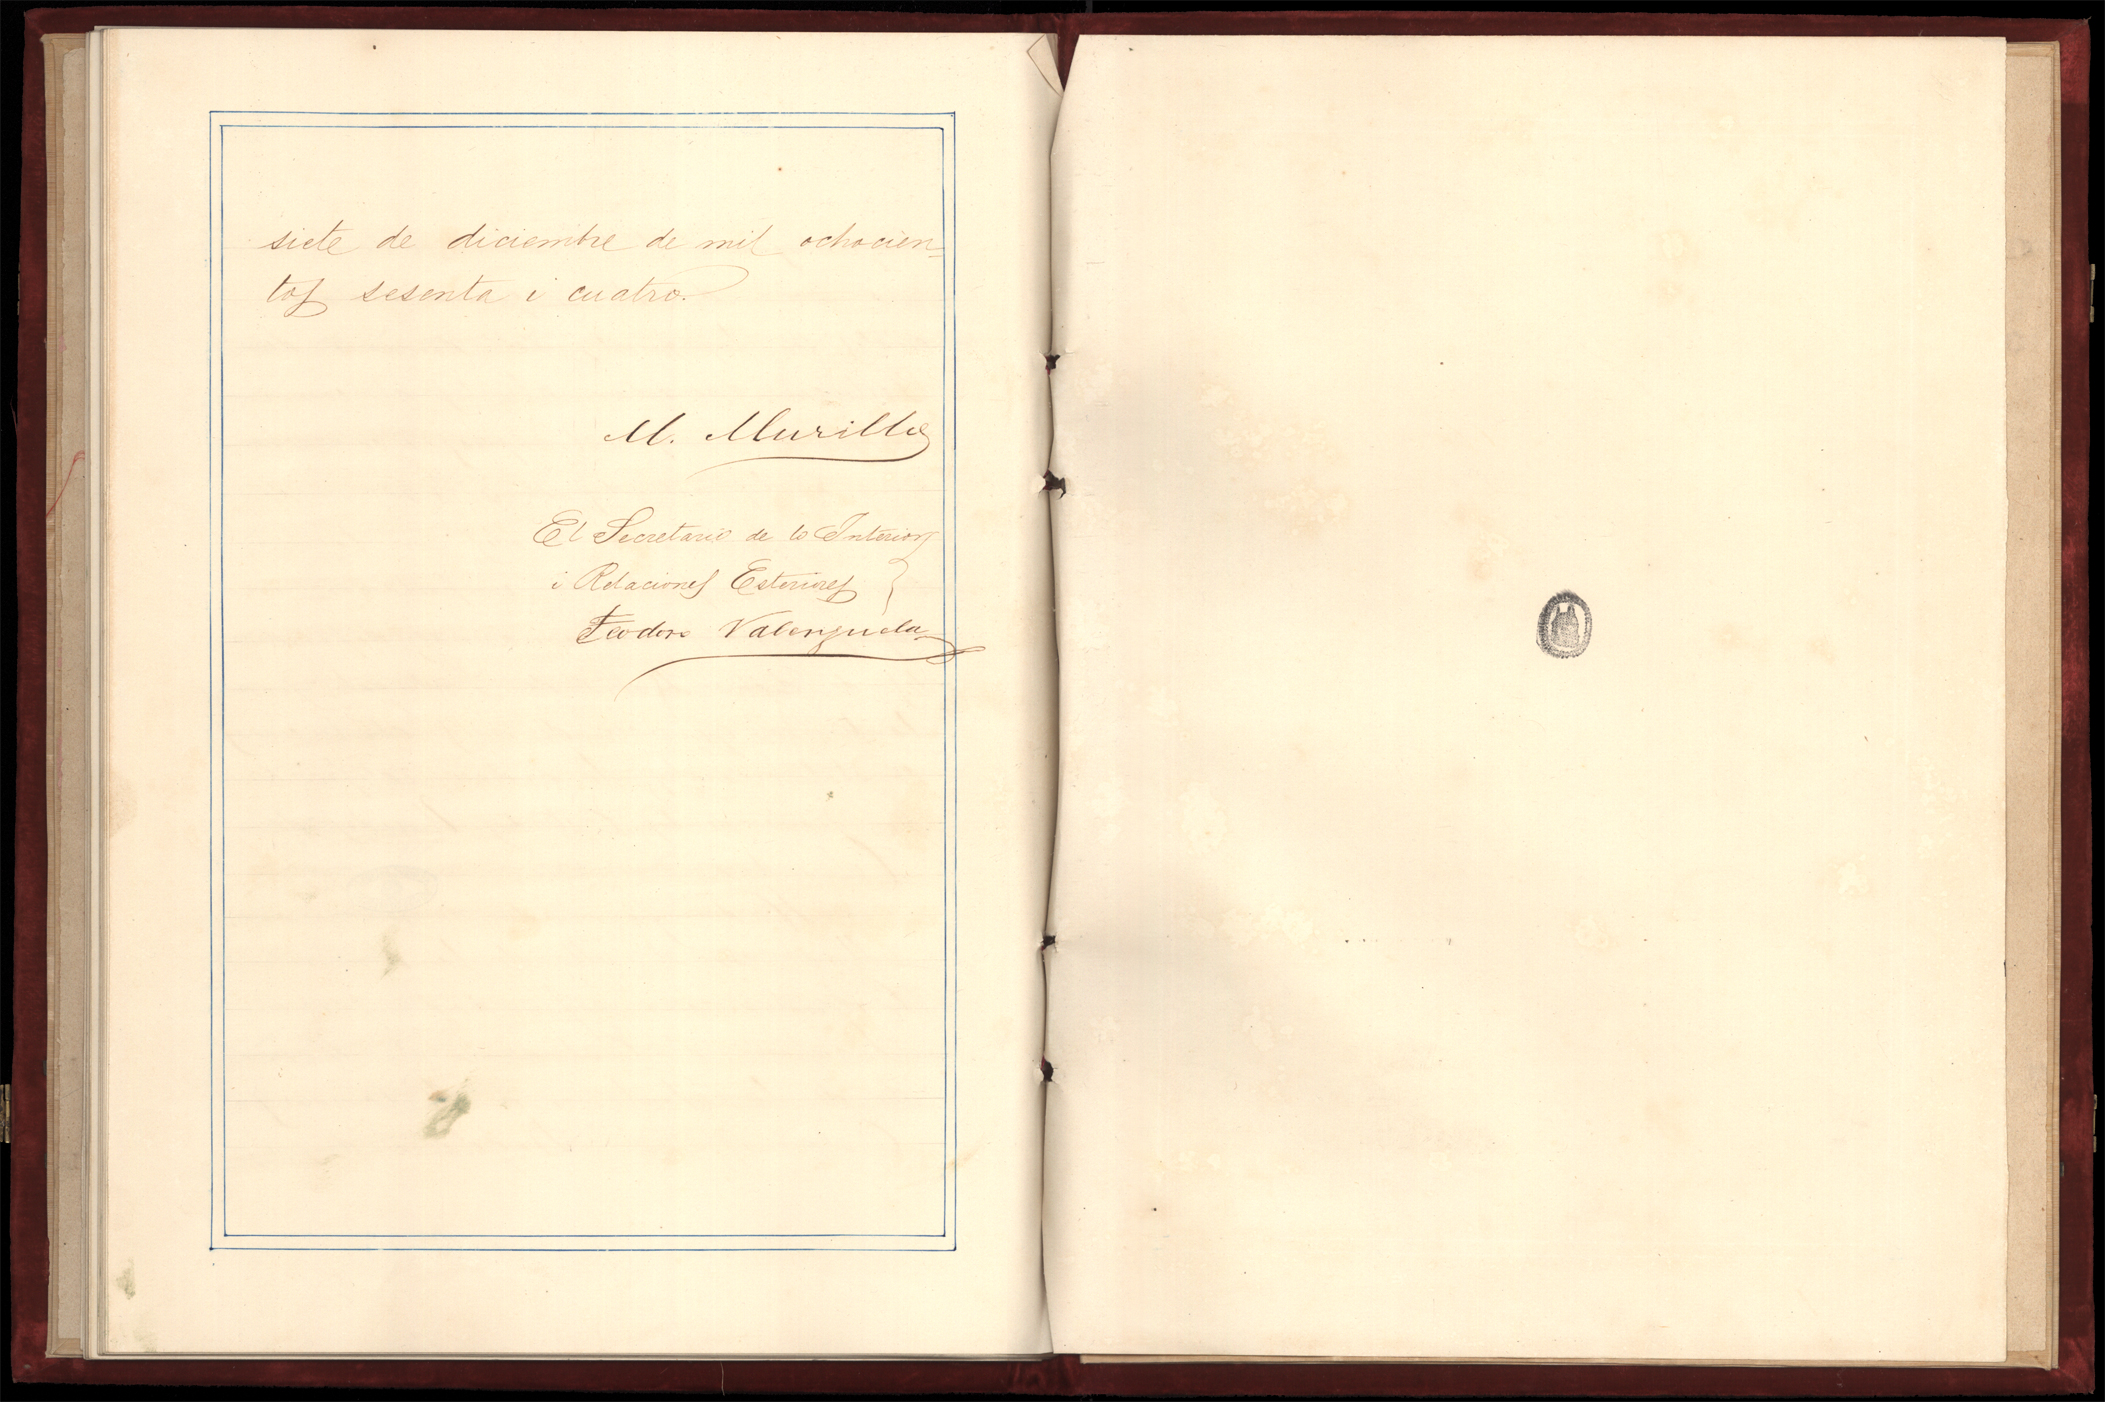 siete de diciembre de mil ochocien-
tos sesenta i cuatro.
M. Murillo
El Secretario de lo Interior
i Relaciones Esteriores
Teodoro Valenzuela